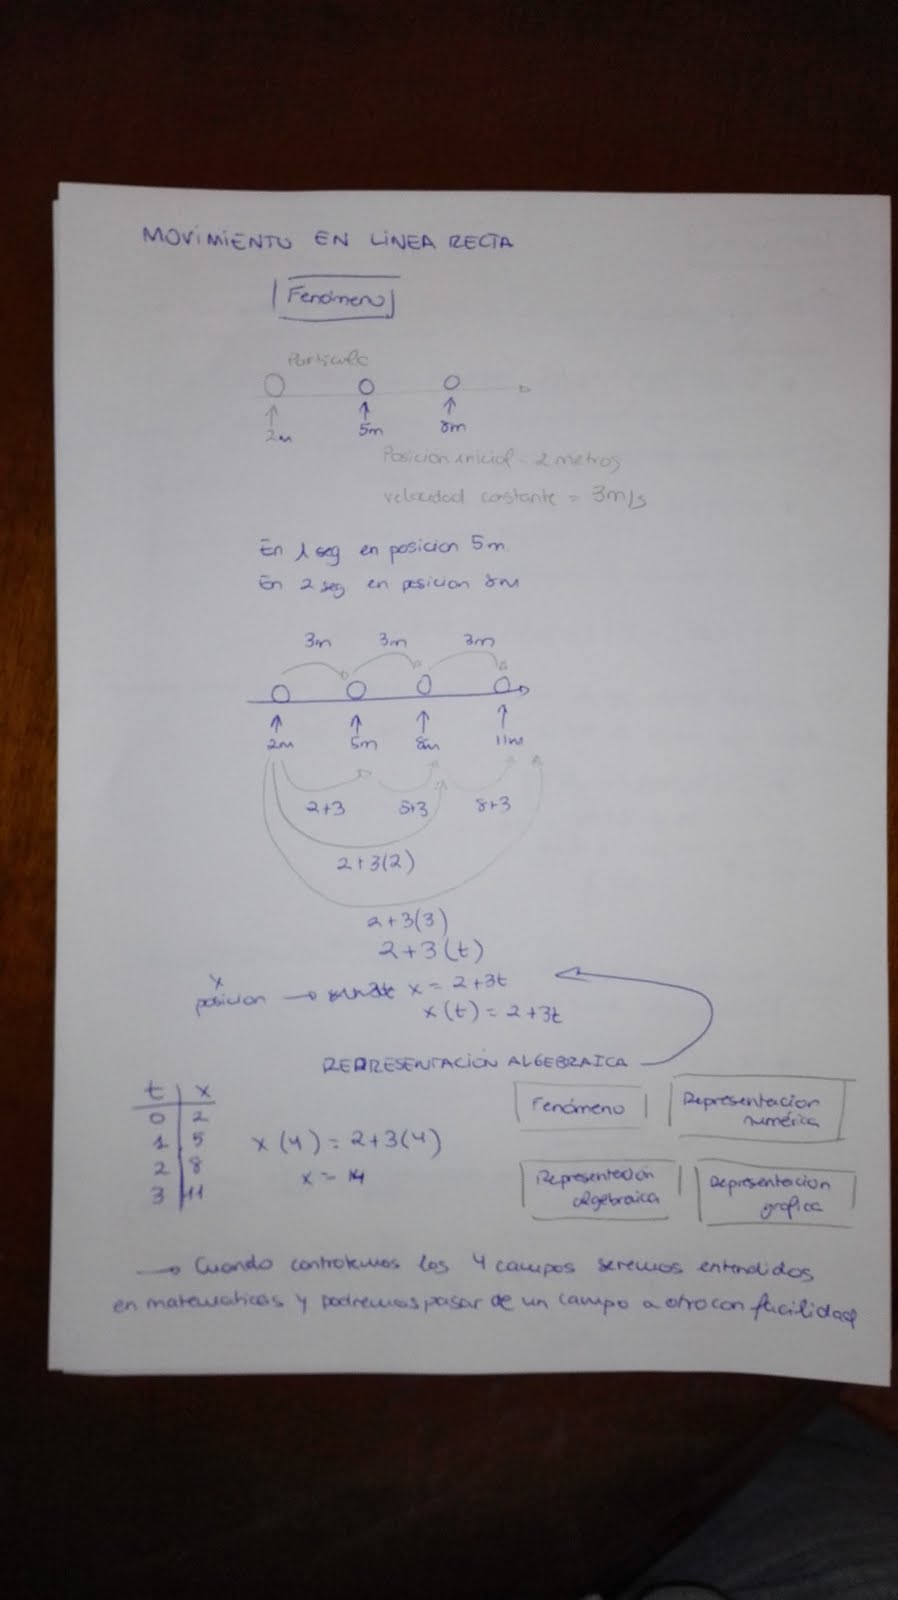 MOVIMIENTO EN LINEA RECTA
Fenómeno
Partícula
2m 5m 8m
Posición inicial - 2 metros
velocidad constante = 3m/s
En 1 seg en posicion 5m
En 2 seg en posicion 8m
3m 3m 3m
2m 5m 8m 11m
2+3 5+3 8+3
2+3(2)
2+3(3)
2+3(t)
x
posicion → x = 2+3t
x(t) = 2+3t
REPRESENTACIÓN ALGEBRAICA
t x
0 2
1 5
2 8
3 11
x(4) = 2+3(4)
x = 14
Fenómeno
Representacion
numérica
Representación
algebraica
Representacion
grafica
→ Cuando controlemos los 4 campos seremos entendidos
en matematicas y podremos pasar de un campo a otro con facilidad